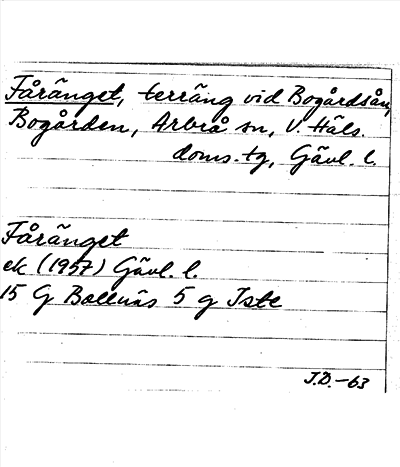 Fåränget, terräng vid Bogårdsån,
Bogården, Arbrå sn, V. Häls.
doms.tg, Gävl. l.
Fåränget
ek (1957) Gävl. l.
15 G Bollnäs 5 g Iste
J.D.-63